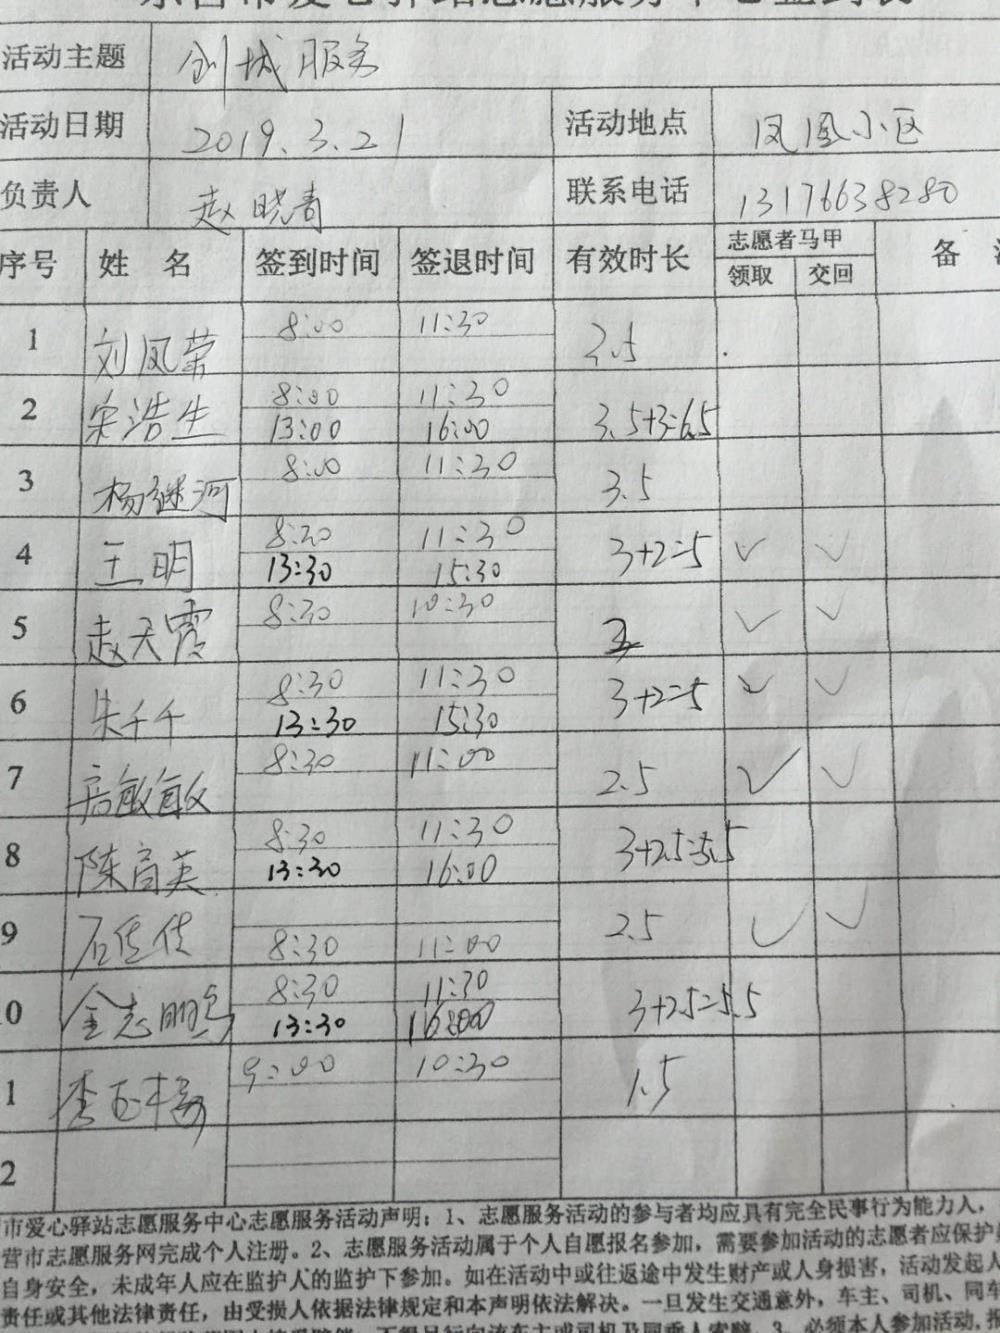 东营市爱心驿站志愿服务中心签到表
活动主题 创城服务
活动日期 2019.3.21 活动地点 凤凰小区
负责人 赵晓青 联系电话 13176638280
序号 姓 名 签到时间 签退时间 有效时长 志愿者马甲 备
领取 交回
1 刘凤荣 8:00 11:30 2.5
2 宋浩生 8:00 11:30 3.5+3=6.5
13:00 16:00
3 杨继河 8:00 11:30 3.5
4 王明 8:30 11:30 3+2=5 ✓ ✓
13:30 15:30
5 赵天霞 8:30 10:30 ✓ ✓
6 朱千千 8:30 11:30 3+2=5 ✓ ✓
13:30 15:30
7 敏敏 8:30 11:00 2.5 ✓ ✓
8 陈高英 8:30 11:30 3+2.5=5.5
13:30 16:00
9 石佳佳 8:30 11:00 2.5 ✓ ✓
0 金志鹏 8:30 11:30 3+2.5=5.5
13:30
1 李玉梅 9:00 10:30 1.5
2
市爱心驿站志愿服务中心志愿服务活动声明：1、志愿服务活动的参与者均应具有完全民事行为能力人，
营市志愿服务网完成个人注册。2、志愿服务活动属于个人自愿报名参加，需要参加活动的志愿者应保护
自身安全，未成年人应在监护人的监护下参加。如在活动中或往返途中发生财产或人身损害，活动发起人
责任或其他法律责任，由受损人依据法律规定和本声明依法解决。一旦发生交通意外，车主、司机、同车
3、必须本人参加活动，